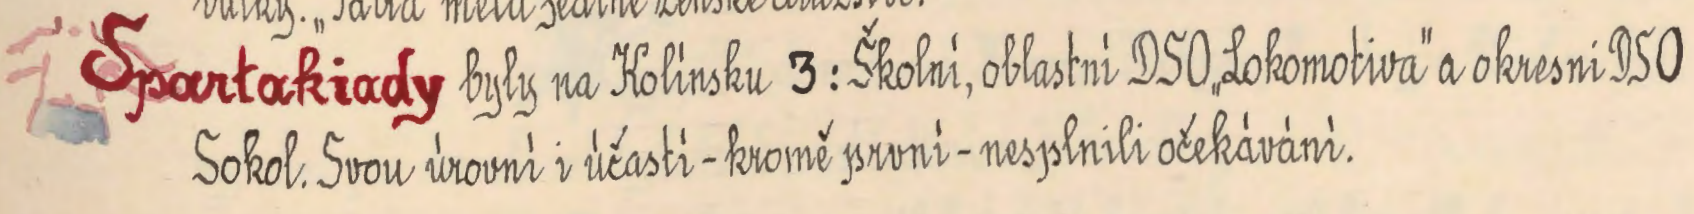 měla jedině ženské družstvo.
Spartakiady byly na Kolínsku 3: Školní, oblastní DSO „Lokomotiva" a okresní DSO
Sokol. Svou úrovní i účastí - kromě první - nesplnili očekávání.